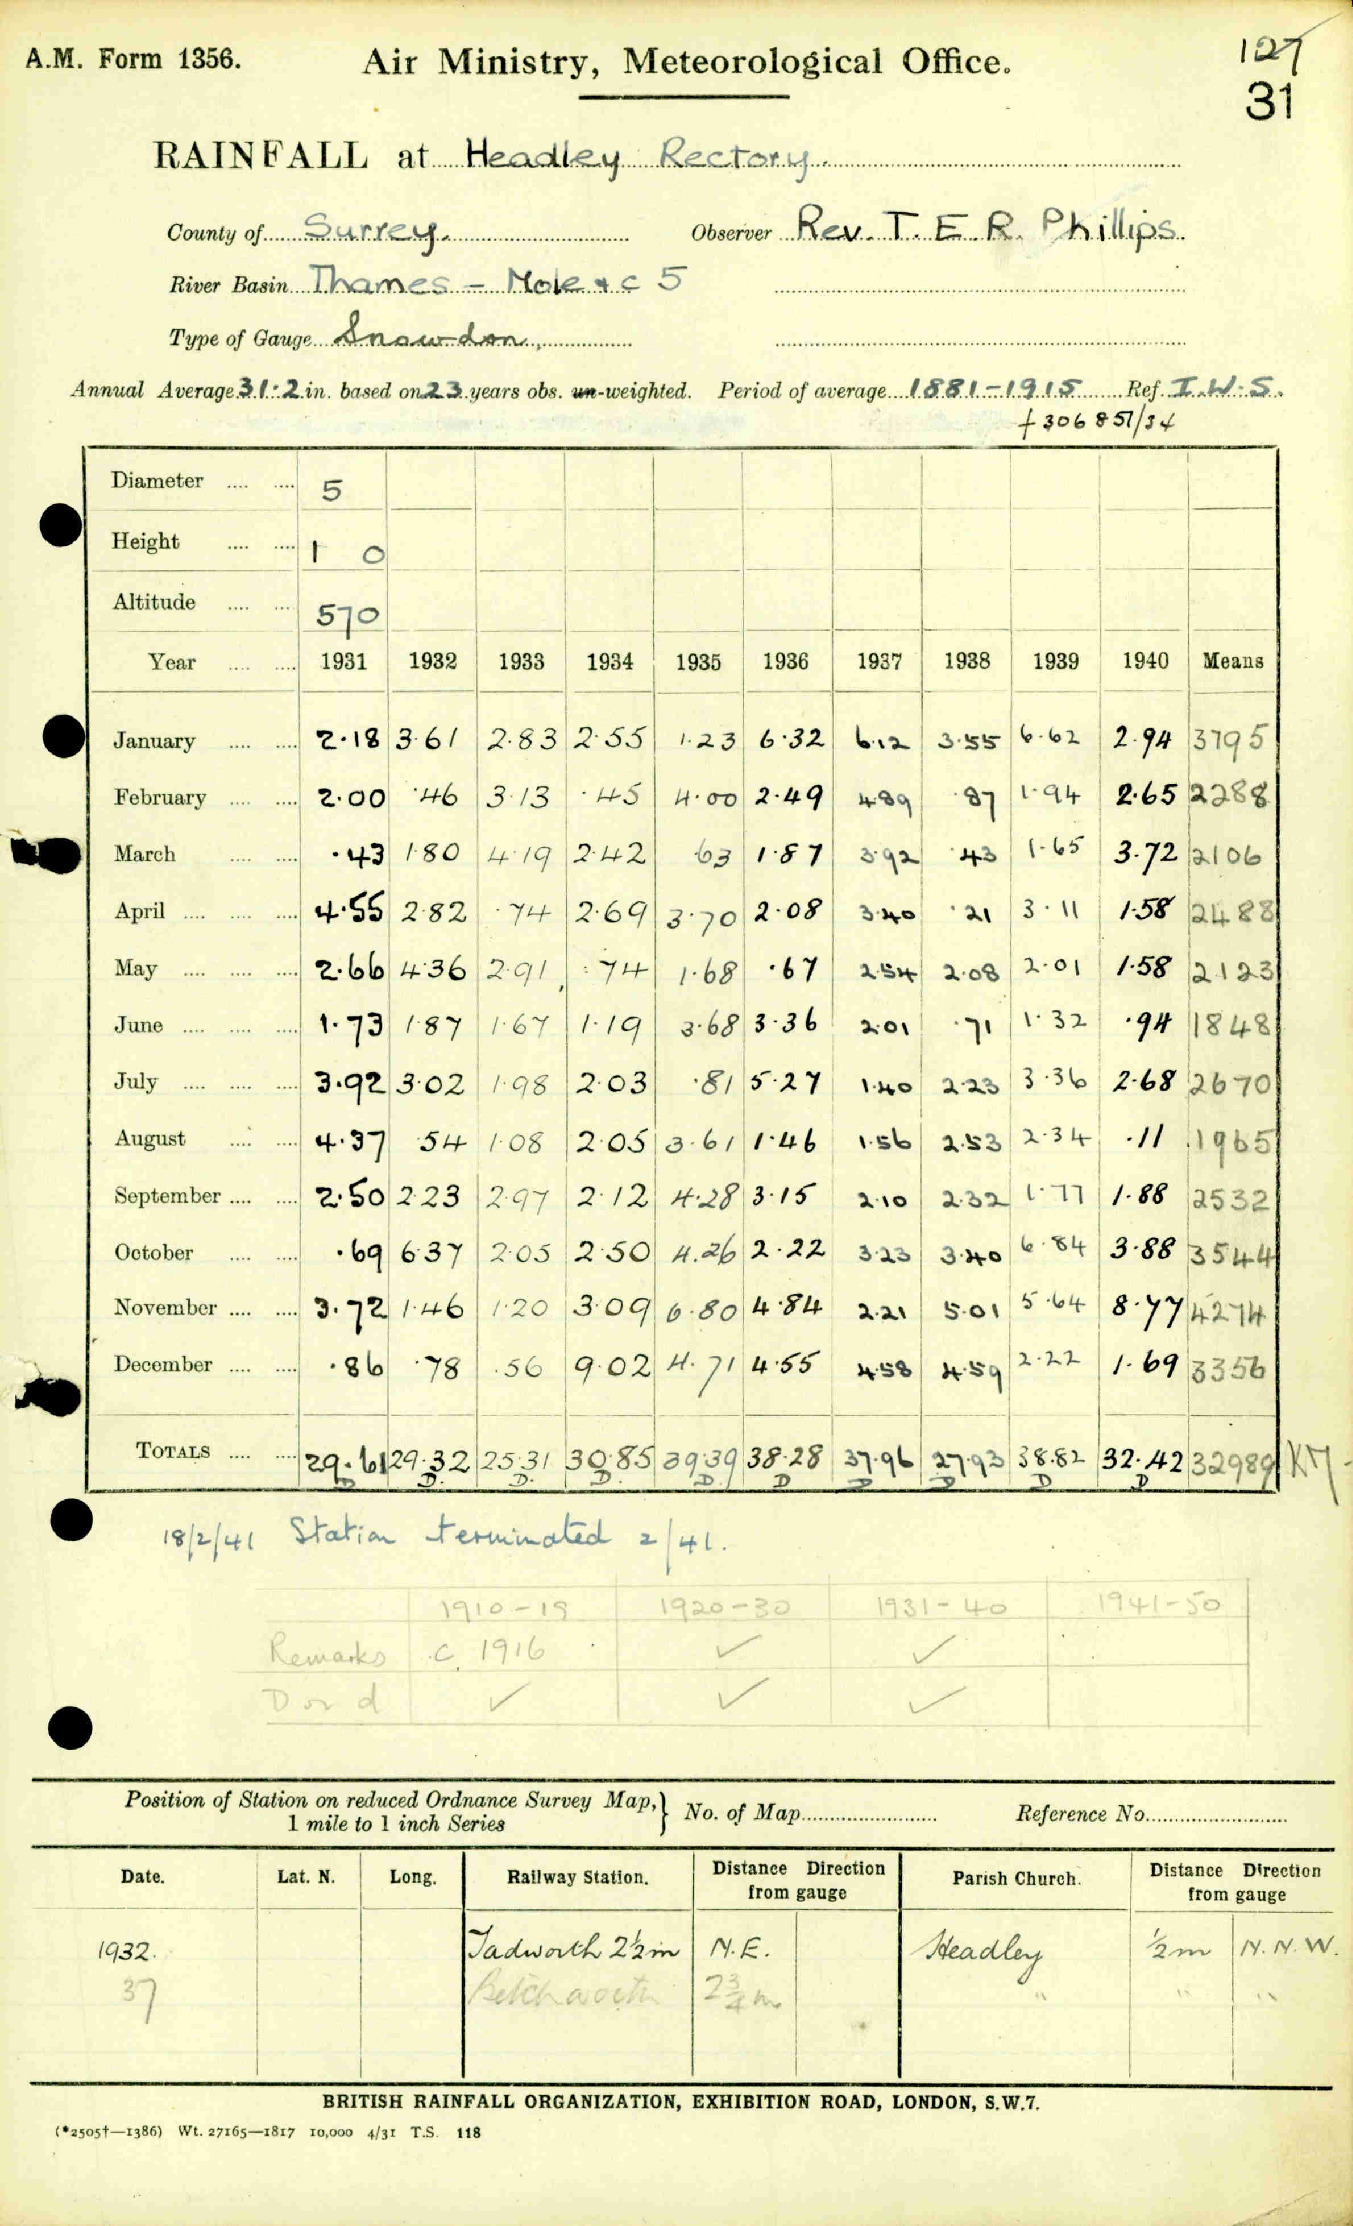 A.M. Form 1356.
Air Ministry, Meteorological Office.
127
31
RAINFALL at Headley Rectory.
County of Surrey. Observer Rev. T. E. R. Phillips.
River Basin Thames – Mole & c 5
Type of Gauge Snowdon.
Annual Average 31·2 in. based on 23 years obs. un-weighted. Period of average 1881–1915 Ref. I.W.S.
f 306851/34
Diameter .... .... 5
Height .... .... 1 0
Altitude .... .... 570
Year .... .... 1931 1932 1933 1934 1935 1936 1937 1938 1939 1940 Means
January .... .... 2·18 3·61 2·83 2·55 1·23 6·32 6·12 3·55 6·62 2·94 3795
February .... .... 2·00 ·46 3·13 ·45 4·00 2·49 4·89 ·87 1·94 2·65 2288
March .... .... ·43 1·80 4·19 2·42 63 1·87 3·92 ·43 1·65 3·72 2106
April .... .... .... 4·55 2·82 ·74 2·69 3·70 2·08 3·40 ·21 3·11 1·58 2488
May .... .... .... 2·66 4·36 2·91 ·74 1·68 ·67 2·54 2·08 2·01 1·58 2123
June .... .... .... 1·73 1·87 1·67 1·19 3·68 3·36 2·01 ·71 1·32 ·94 1848
July .... .... .... 3·92 3·02 1·98 2·03 ·81 5·27 1·40 2·23 3·36 2·68 2670
August .... .... 4·37 ·54 1·08 2·05 3·61 1·46 1·56 2·53 2·34 ·11 1965
September .... .... 2·50 2·23 2·97 2·12 4·28 3·15 2·10 2·32 1·77 1·88 2532
October .... .... ·69 6·37 2·05 2·50 4·26 2·22 3·23 3·40 6·84 3·88 3544
November .... .... 3·72 1·46 1·20 3·09 6·80 4·84 2·21 5·01 5·64 8·77 4274
December .... .... ·86 ·78 ·56 9·02 4·71 4·55 4·58 4·59 2·22 1·69 3356
TOTALS .... .... 29·61 29·32 25·31 30·85 39·39 38·28 37·96 27·93 38·82 32·42 32989
D D. D. D. D D D D D D
18/2/41 Station terminated 2/41.
1910–19 1920–30 1931–40 1941–50
Remarks c. 1916 ✓ ✓
D or d ✓ ✓ ✓
Position of Station on reduced Ordnance Survey Map, } No. of Map Reference No.
1 mile to 1 inch Series
Date. Lat. N. Long. Railway Station. Distance Direction from gauge Parish Church. Distance Direction from gauge
1932. Tadworth 2½m N.E. Headley ½m N.N.W.
37 Betchworth 2¾m " " "
BRITISH RAINFALL ORGANIZATION, EXHIBITION ROAD, LONDON, S.W.7.
(*2505†—1386) Wt. 27165—1817 10,000 4/31 T.S. 118